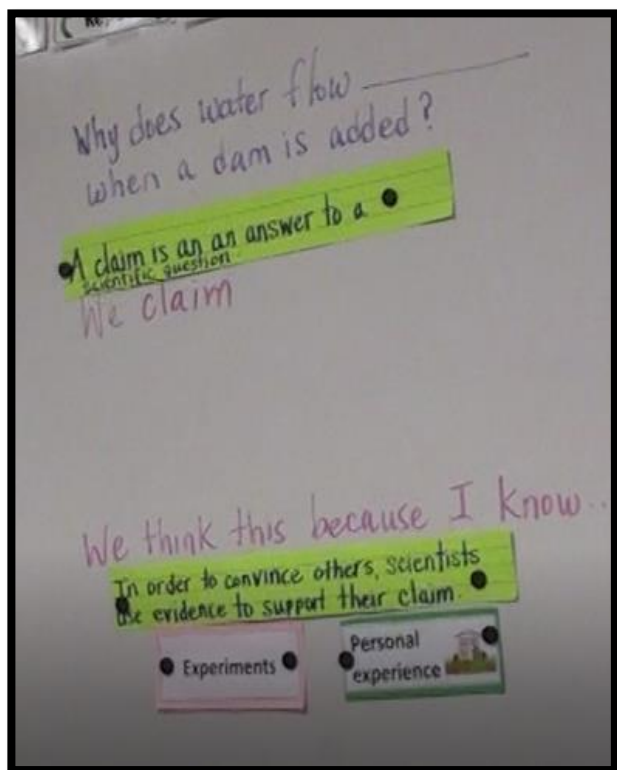 Why does water flow ________
when a dam is added?
A claim is an an answer to a
scientific question
We claim
We think this because I know..
In order to convince others, scientists
use evidence to support their claim.
Experiments
Personal
experience